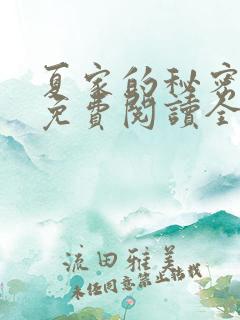 夏家的秘密
免費閱讀全
流田雅美
未经同意禁止转载